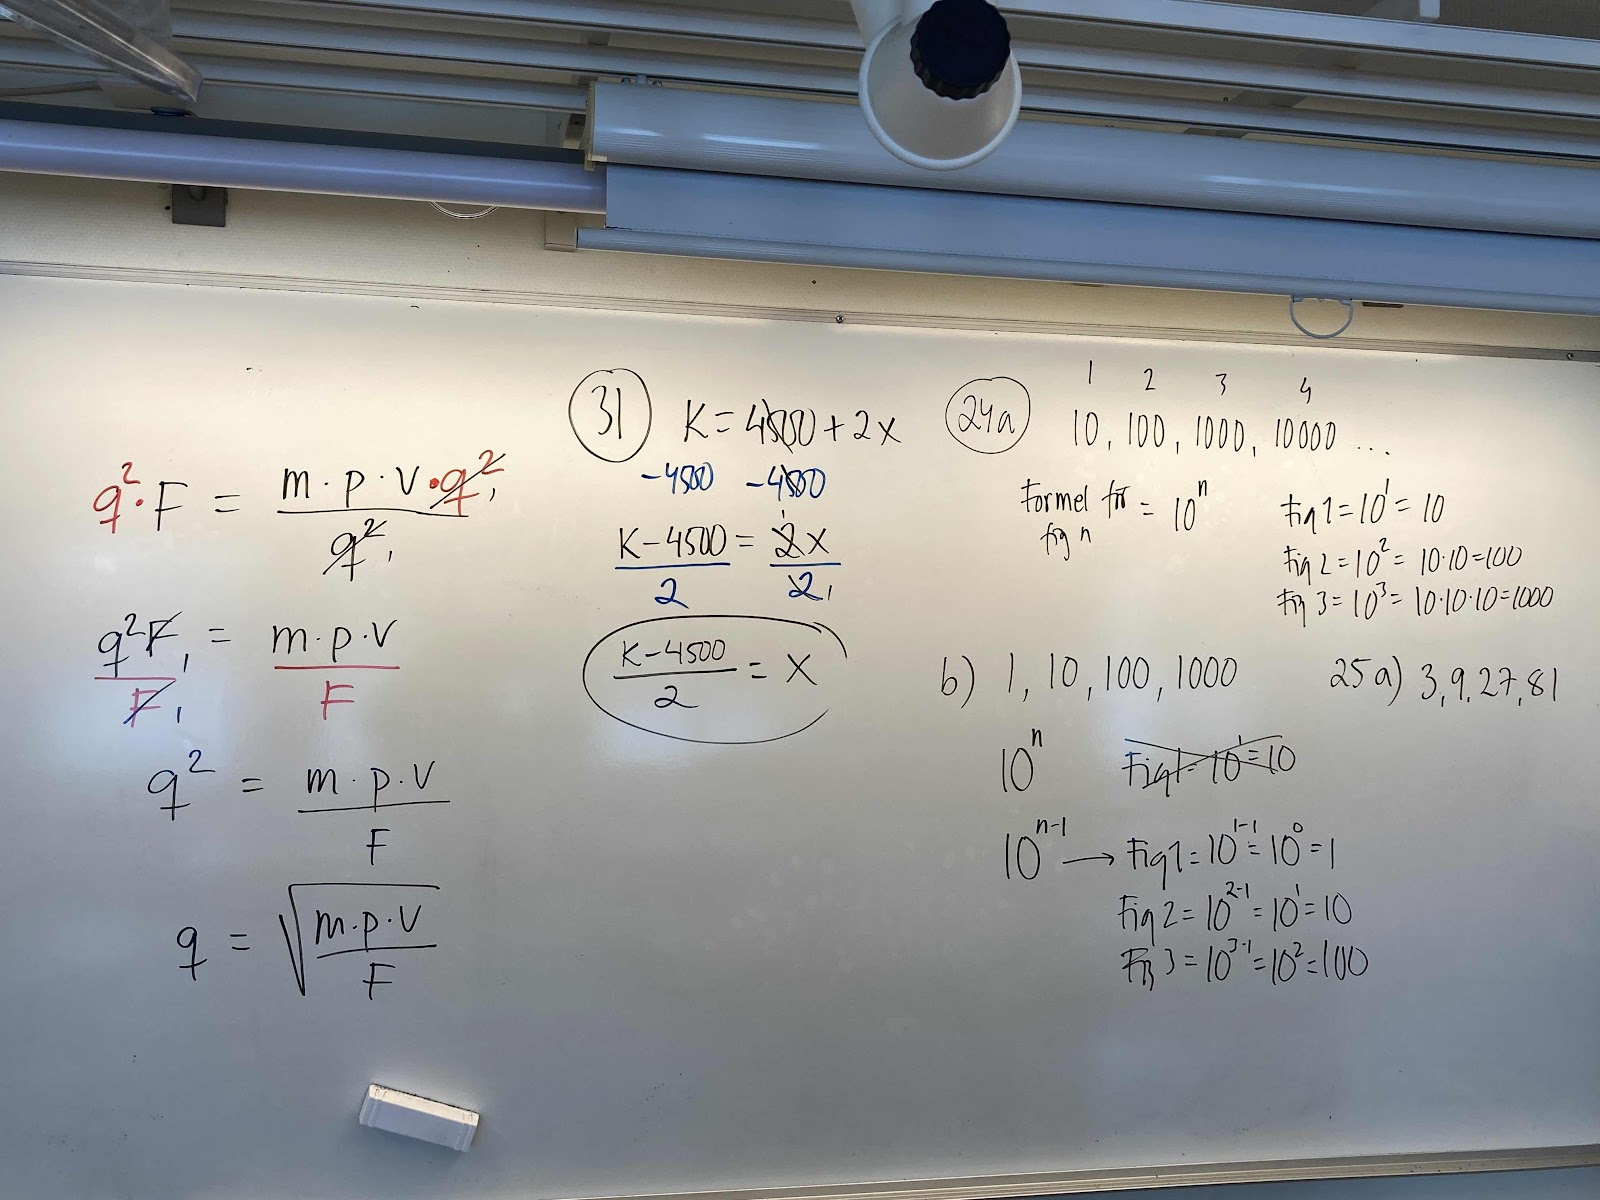 q²·F = m·p·v·q² / q²₁
q²F₁ / F₁ = m·p·v / F
q² = m·p·v / F
q = √(m·p·v / F)
31 K = 4500 + 2x
-4500 -4500
K-4500 / 2 = 2x / 2₁
K-4500 / 2 = x
24a 1 2 3 4
10, 100, 1000, 10000 ...
Formel för fig n = 10ⁿ
Fig 1 = 10¹ = 10
Fig 2 = 10² = 10·10 = 100
Fig 3 = 10³ = 10·10·10 = 1000
b) 1, 10, 100, 1000
10ⁿ Fig 1 = 10¹ = 10
10ⁿ⁻¹ → Fig 1 = 10¹⁻¹ = 10⁰ = 1
Fig 2 = 10²⁻¹ = 10¹ = 10
Fig 3 = 10³⁻¹ = 10² = 100
25 a) 3, 9, 27, 81